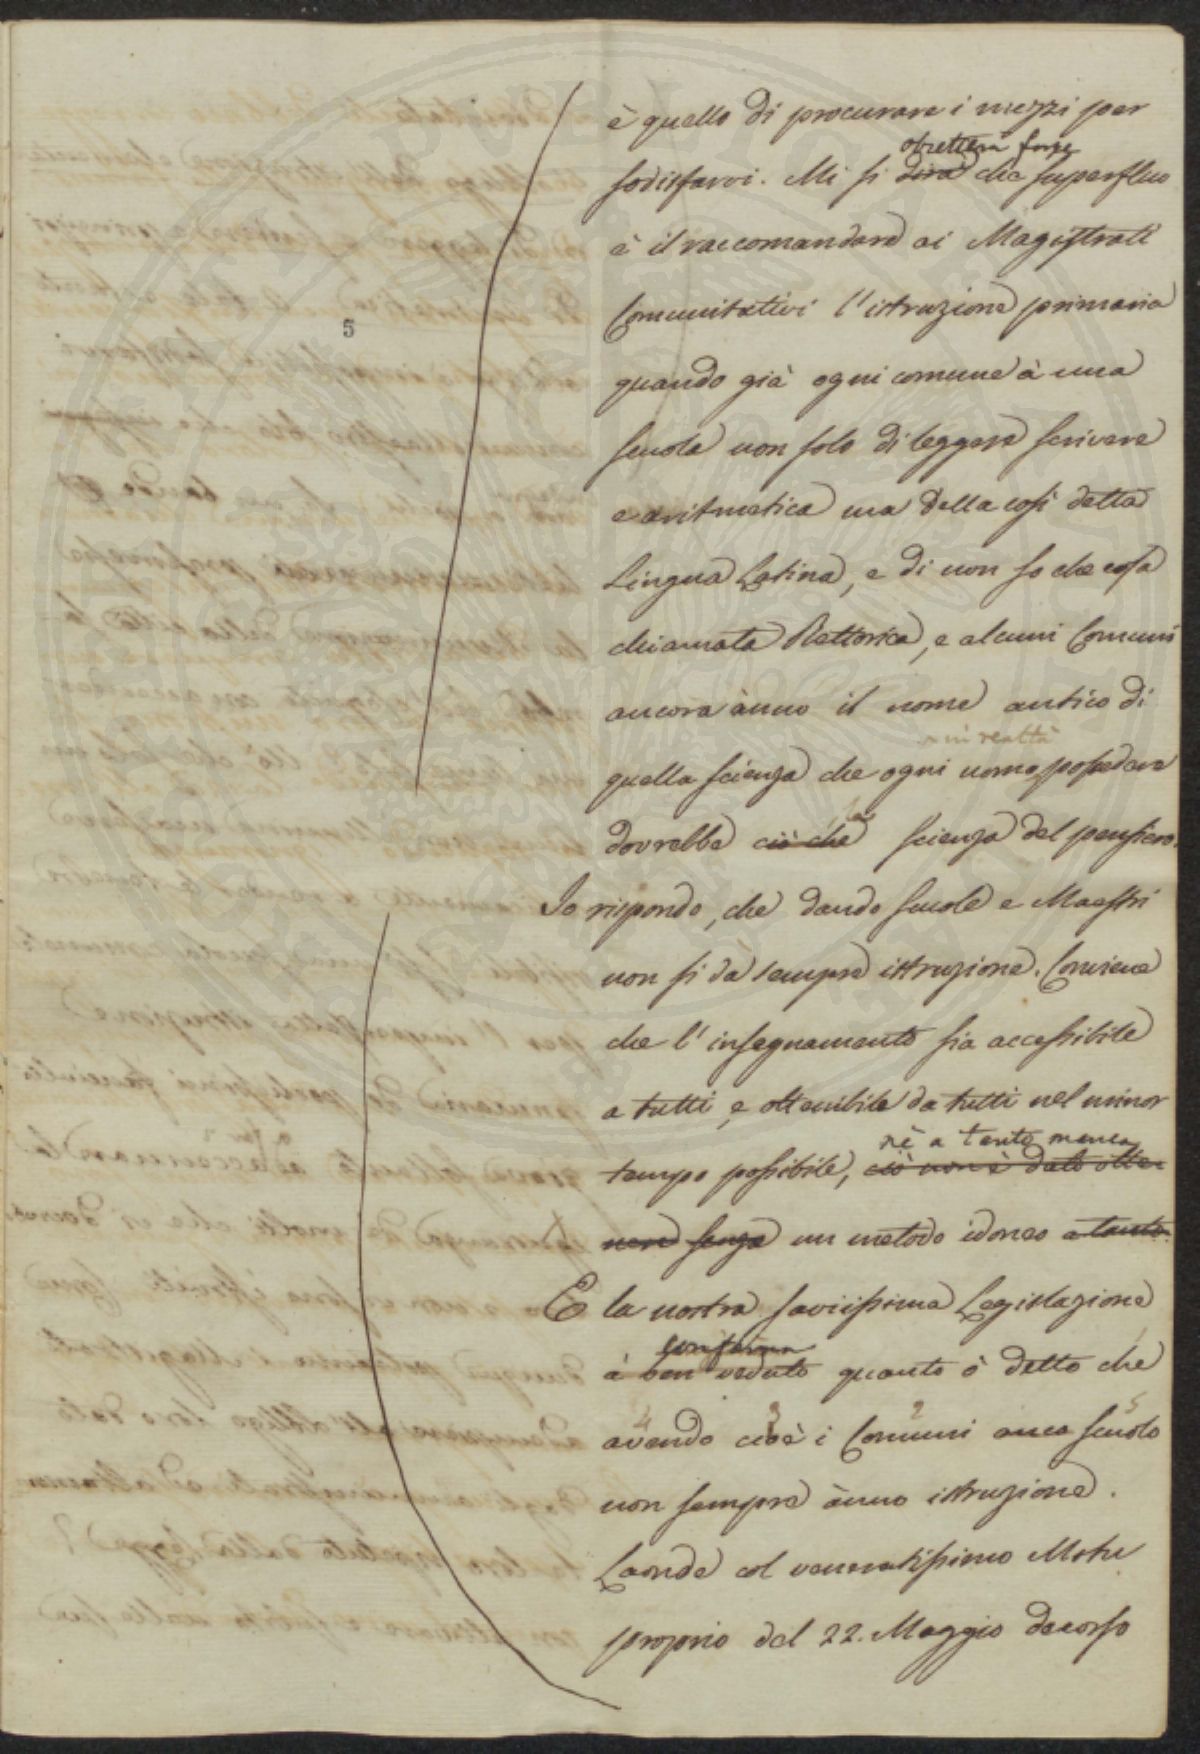 5
è quello di procurare i mezzi per
obietterà forse
sodisfarvi. Mi si dirà che superfluo
è il raccomandare ai Magistrati
Comunitativi l'istruzione primaria
quando già ogni comune à una
scuola non solo di leggere scrivere
e aritmetica ma della così detta
Lingua Latina, e di non so che cosa
chiamata Rettorica, e alcuni Comuni
ancora ànno il nome antico di
in realtà
quella scienza che ogni uomo possedere
dovrebbe ciò che scienza del pensiero.
Io rispondo, che dando scuole e Maestri
non si dà sempre istruzione. Conviene
che l'insegnamento sia accessibile
a tutti, e ottenibile da tutti nel minor
nè a tanto manca
tempo possibile, ciò non è dato otte-
nere senza un metodo idoneo a tanto.
E la nostra saviissima Legislazione
conferma
à ben veduto quanto ò detto che
4 3 2 5
avendo cioè i Comuni anco scuole
non sempre ànno istruzione.
Laonde col veneratissimo Motu
proprio del 22. Maggio decorso